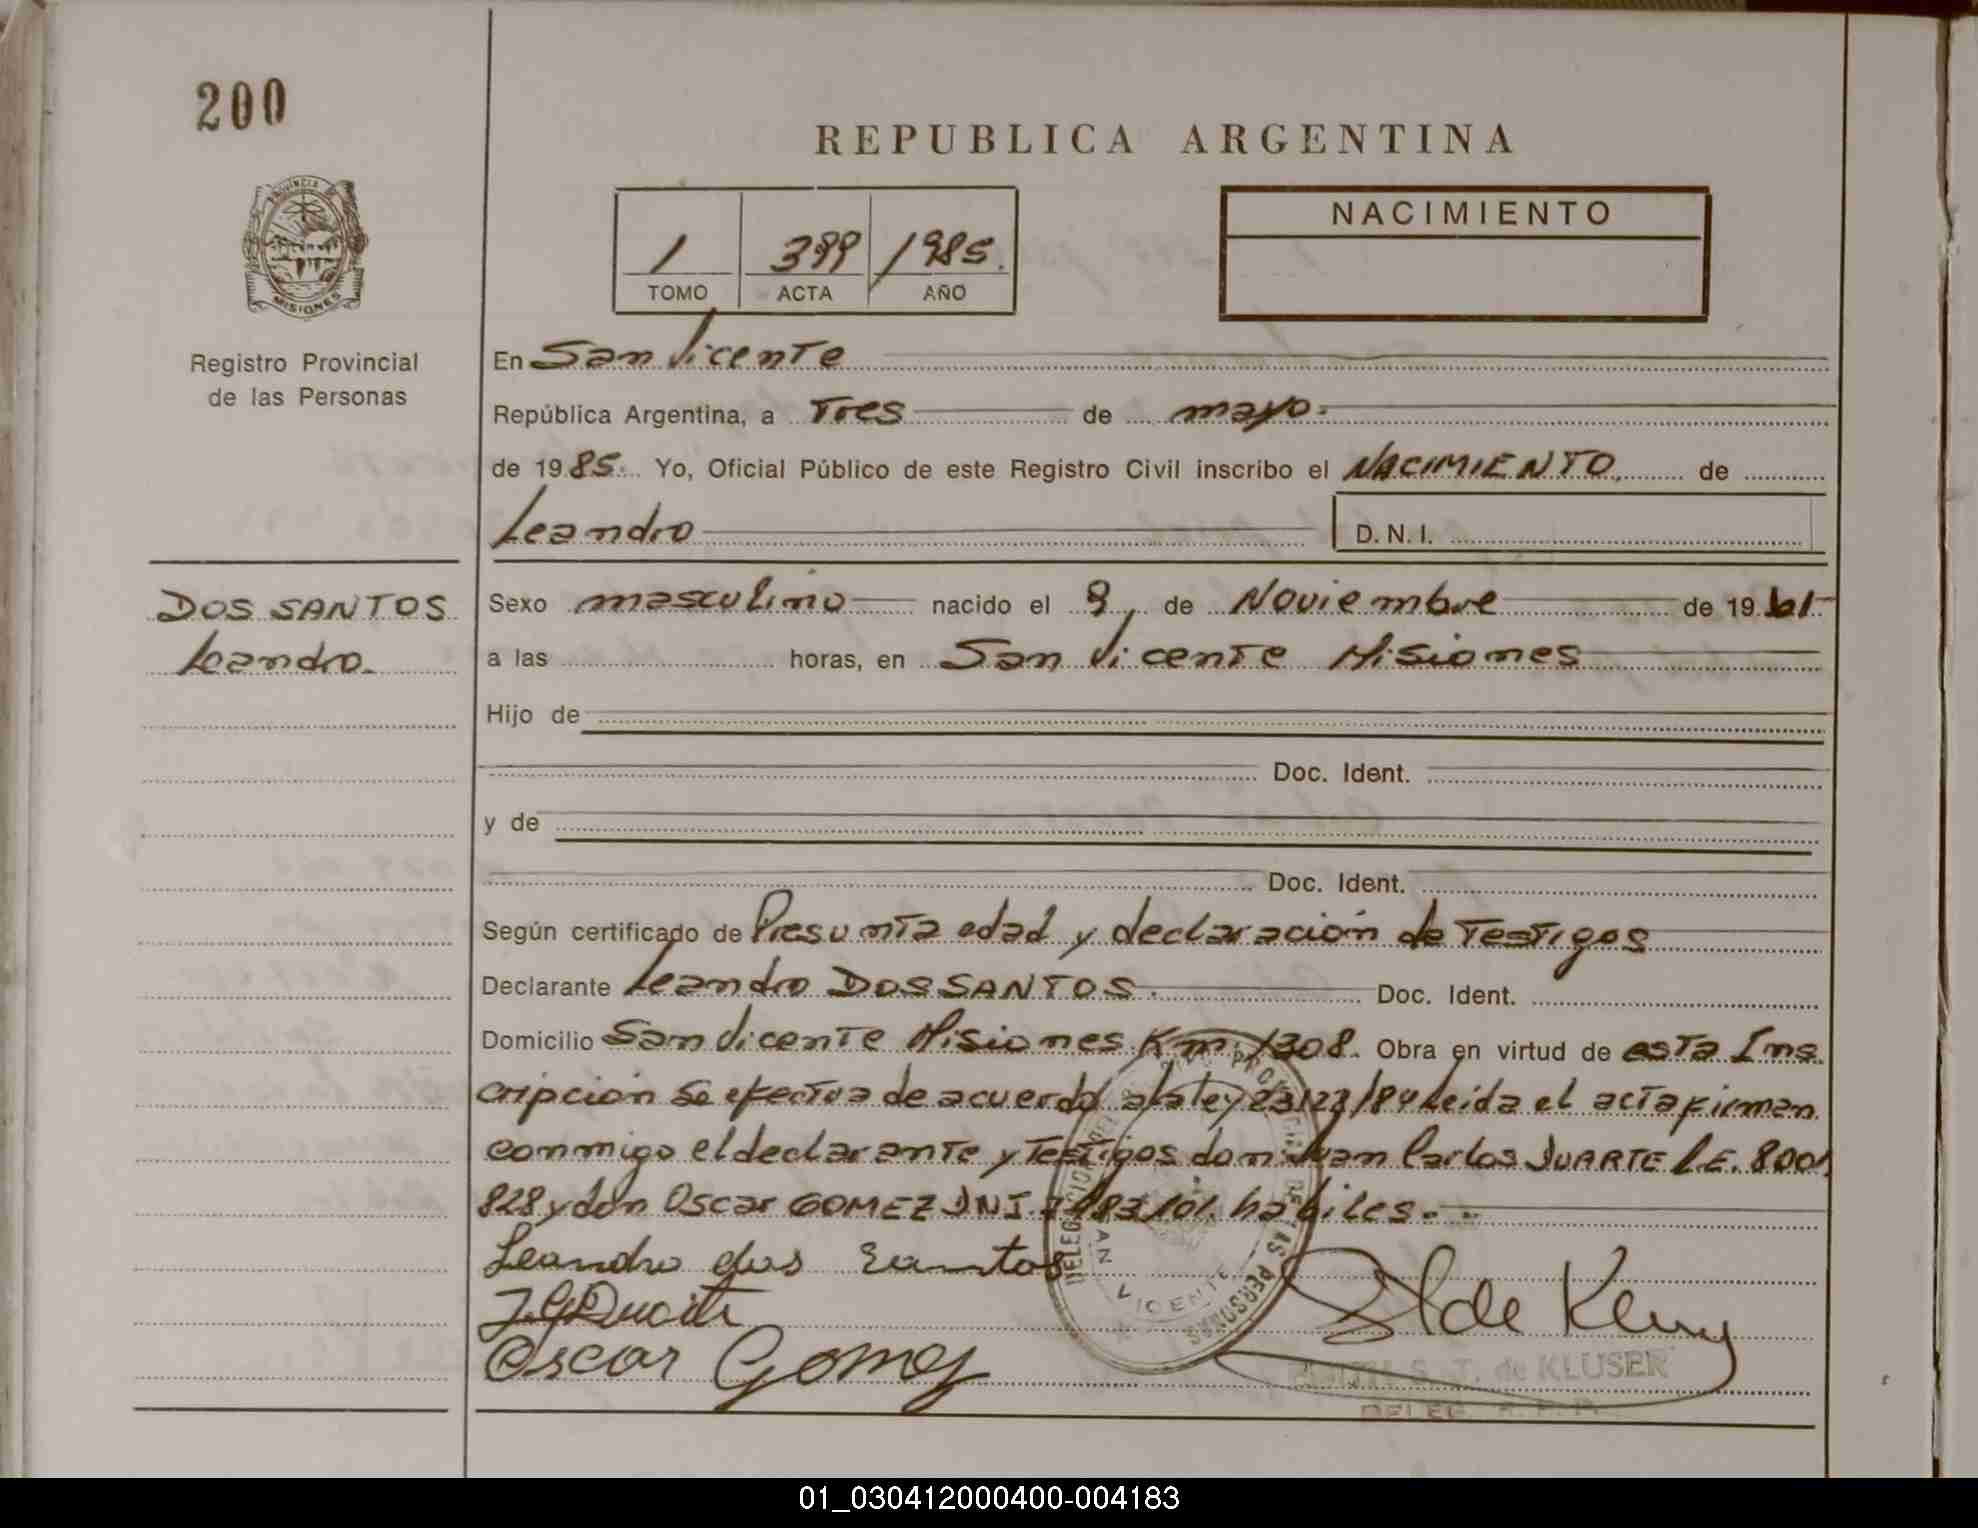 200
REPUBLICA ARGENTINA
PROVINCIA
MISIONES
1 399 1985.
TOMO ACTA AÑO
NACIMIENTO
Registro Provincial
de las Personas
En San Vicente
República Argentina, a Tres de mayo.
de 1985. Yo, Oficial Público de este Registro Civil inscribo el NACIMIENTO de
Leandro D.N.I.
DOS SANTOS
Leandro.
Sexo masculino nacido el 9 de Noviembre de 1961
a las horas, en San Vicente Misiones
Hijo de
Doc. Ident.
y de
Doc. Ident.
Según certificado de Presunta edad y declaración de Testigos
Declarante Leandro DOS SANTOS. Doc. Ident.
Domicilio San Vicente Misiones Km. 1308. Obra en virtud de esta Ins
cripción se efectua de acuerdo a la ley 23122/84 Leida el acta firman
conmigo el declarante y Testigos don Juan Carlos DUARTE L.E. 8001
828 y don Oscar GOMEZ DNI. 101. habiles.
Leandro dos Santos
J.C. Duarte
Oscar Gomez
DELEGACION PERSONAS
SAN VICENTE
S. J. de KLUSER
DELEG. R. P. P.
01_030412000400-004183